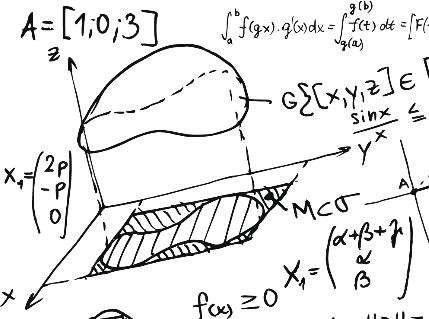 A = [1;0;3]
∫ₐᵇ f(gx).g'(x)dx = ∫_{g(a)}^{g(b)} f(t) dt = [F(
z
G{[x,y,z] ∈
sinx ≤
x
y
X₁ = (2p
-p
0)
A
M⊂σ
X₁ = (α+β+γ
α
β)
x
f(x) ≥ 0